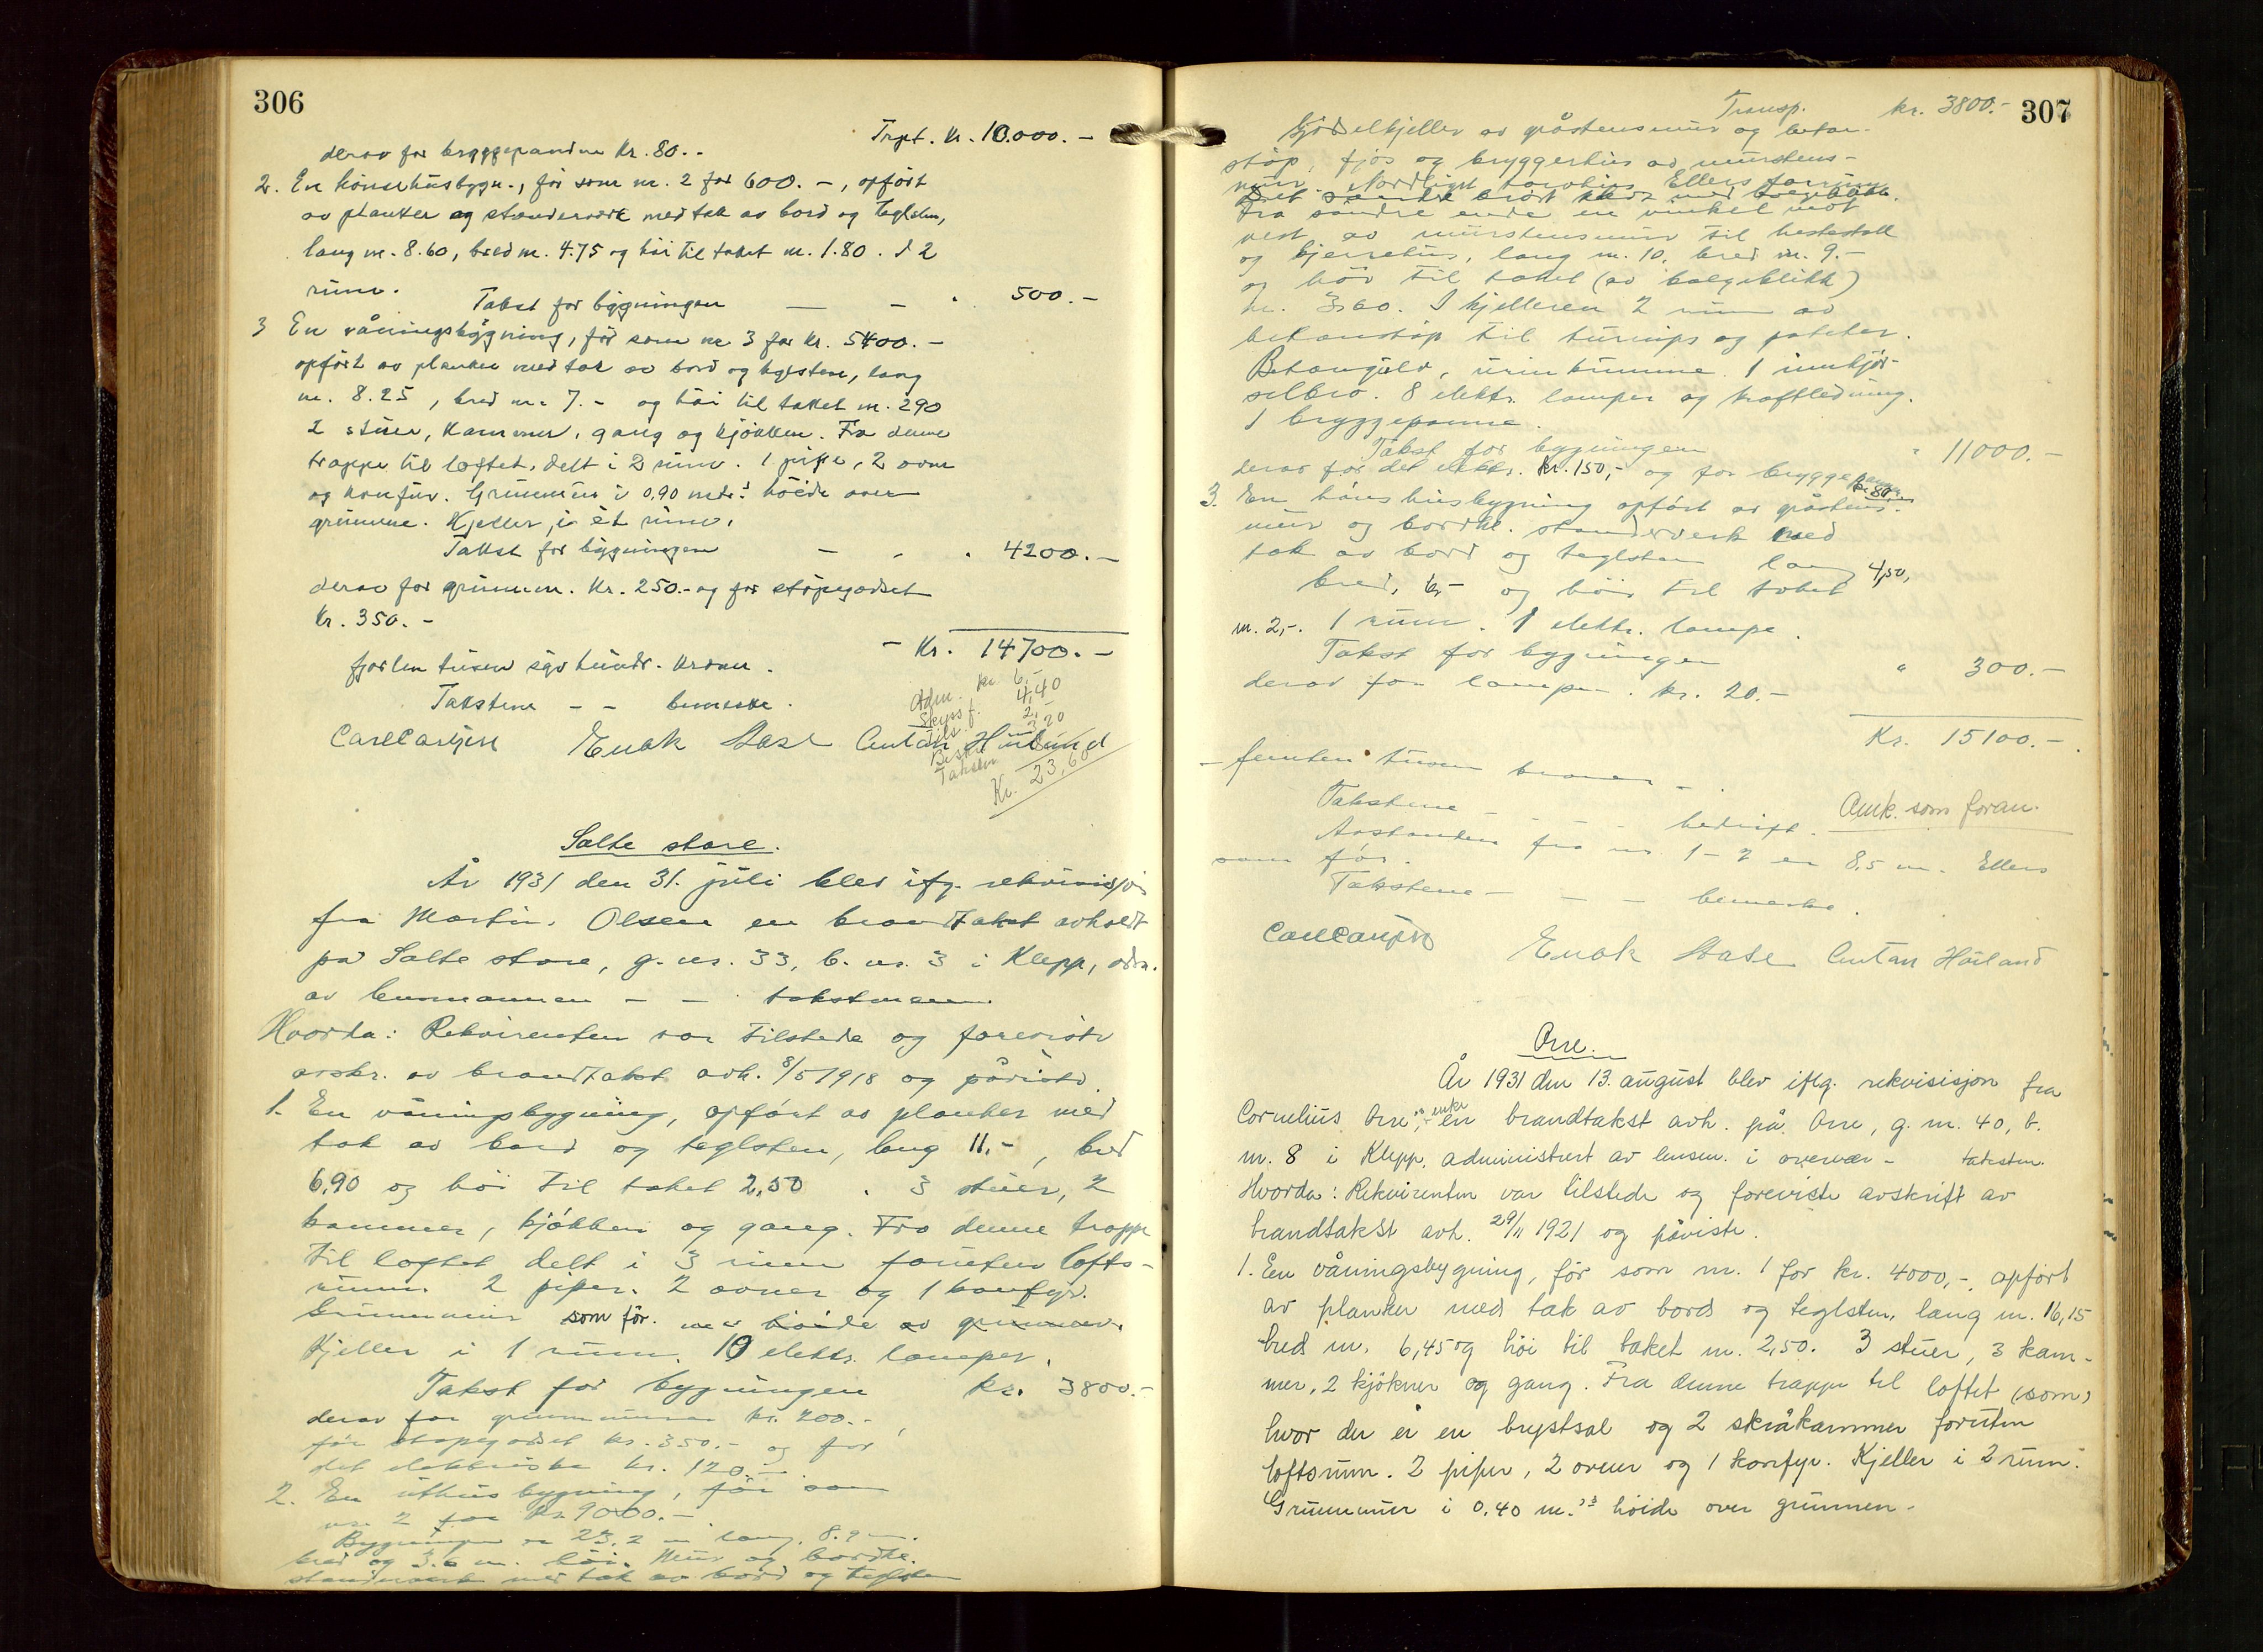 306
Trpt. Kr. 10.000.-
derav for bryggepanden Kr. 80.-
2. En hönsehusbygn., för som nr. 2 for 600.-, opfört
av planker og stenderverk med tak av bord og teglsten,
lang m. 8.60, bred m. 4.75 og höi til taket m. 1.80. I 2
rum.
Takst for bygningen - - " 500.-
3 En våningsbygning, för som nr. 3 for kr. 5400.-
opfört av planker med tak av bord og teglsten, lang
m. 8.25, bred m. 7.- og höi til taket m. 290
2 stuer, kammer, gang og kjökken. Fra denne
trappe til loftet, delt i 2 rum. 1 pipe, 2 ovne
og komfur. Grunmur i 0,90 mtrs höide over
grunnen. Kjeller i et rum.
Takst for bygningen - - " 4200.-
derav for grunnm. Kr. 250.- og for stöpegodset
Kr. 350.-
- Kr. 14700.-
fjorten tusen syv hundr. kroner.
Takstene - - bemerke.
Adm. kr. 6,-
Skyss f. 4,40
Kr. 23,60
Carl Carlsen Enok Stase Anton Höiland
Salte store.
År 1931 den 31. juli blev ifg. rekvisisjon
fra Martin Olsen en brandtakst avholdt
på Salte store, g. nr. 33, b. nr. 3 i Klepp, adm.
av lensmannen - - takstmenn.
Hvorda: Rekvirenten var tilstede og foreviste
avskr. av brandtakst avh. 8/5 1918 og påviste
1. En våningsbygning, opfört av planker med
tak av bord og teglsten, lang 11.-, bred
6,90 og höi til taket 2,50. 3 stuer, 2
kammer, kjökken og gang. Fra denne trappe
til loftet delt i 3 rum foruten lofts-
rum. 2 piper. 2 ovner og 1 komfyr.
Grunnmur som för. höide av grunnen.
Kjeller i 1 rum. 10 elektr. lamper.
Takst for bygningen kr. 3800.-
derav for grunnmuren kr. 200.-,
for stöpegodset kr. 350.- og for
det elektriske kr. 120.-.
2. En uthusbygning, för som
nr. 2 for kr. 9000.-
Bygningen er 23,2 m lang, 8.9 m.
bred og 3.6 m. höi. Mur og bordkl.
stenderverk med tak av bord og teglsten
307
Transp. kr. 3800.-
Gjödselkjeller av gråstensmur og beton-
stöp, fjös og bryggerhus av murstens-
mur. Nordligst torvhus. Ellers forrum.
Fra söndre ende en vinkel mot
vest av murstensmur til hestestall
og kjerrehus, lang m. 10. bred m. 9.-
og höi til taket (av bølgeblikk)
m. 3.60. I kjelleren 2 rum av
betonstöp til turnips og poteter.
Betongulv, urinkumme. 1 innkjör-
selbro. 8 elektr. lamper og kraftledning.
1 bryggepanne.
Takst for bygningen " 11000.-
derav for det elektr. kr. 150,- og for bryggepannen
kr. 80.-
3. En hönshusbygning opfört av gråstens-
mur og bordkl. stenderverk med
tak av bord og teglsten lang 4,50,
bred, 6,- og höi til taket
m. 2,-. 1 rum. 1 elektr. lampe.
Takst for bygningen " 300.-
derav for lampen. kr. 20.-
Kr. 15100.-
- femten tusen kroner -
Takstene - - - bedrift. Amk. som foran.
Avstanden fra nr. 1-2 er 8,5 m. Ellers
som för.
Takstene - - - bemerke.
Carl Carlsen Enok Stase Anton Höiland
Orre.
År 1931 den 13. august blev iflg. rekvisisjon fra
Cornelius Orre's enke en brandtakst avh. på Orre, g. nr. 40, b.
nr. 8 i Klepp, administrert av lensm. i overvær - takstm.
Hvorda: Rekvirenten var tilstede og foreviste avskrift av
brandtakst avh. 29/11 1921 og påviste.
1. En våningsbygning, för som nr. 1 for kr. 4000,-, opfört
av planker med tak av bord og teglsten, lang m. 16,15
bred m. 6,45 og höi til taket m. 2,50. 3 stuer, 3 kam-
mer, 2 kjökner og gang. Fra denne trappe til loftet (som)
hvor der er en brystsal og 2 skråkammer foruten
loftsrum. 2 piper, 2 ovner og 1 komfyr. Kjeller i 2 rum.
Grunnmur i 0,40 m.s höide over grunnen.